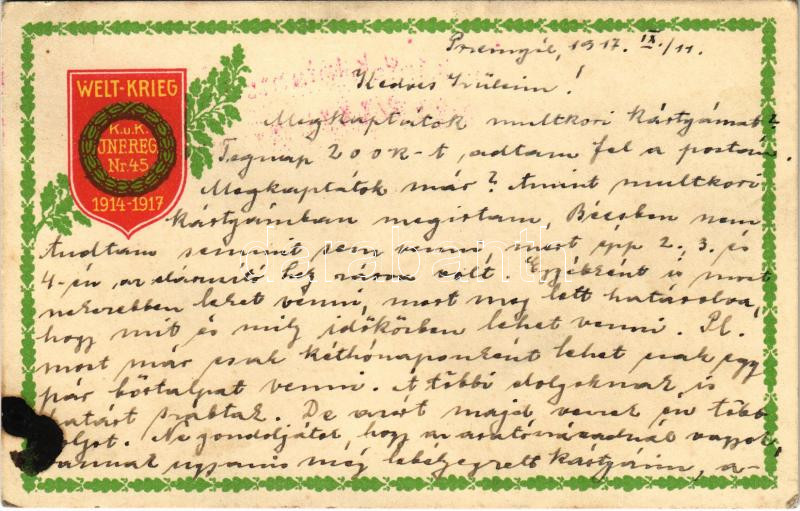 Przemysl, 1917. IX./11.
Kedves Szüleim!
WELT-KRIEG
K.u.K.
JNF.REG.
Nr.45
1914-1917
Megkaptátok multkori kártyámat?
Tegnap 200K-t, adtam fel a postán.
Megkaptátok már? Amint multkori
kártyámban megirtam, Bécsben nem
tudtam semmit sem venni mert épp 2. 3. és
4-én, az elárusító hely zárva volt. Egyébként is most
nehezebben lehet venni, mert meg lett határozva,
hogy mit és mily időközben lehet venni. Pl.
most már csak kéthónaponként lehet csak egy
pár bőrtalpat venni. A többi dolgoknak is
határt szabtak. De azért majd veszek én több
dolgot. Ne gondoljátok, hogy az
vannak ugyanis még lebélyegzett kártyáim, a-
darabanth